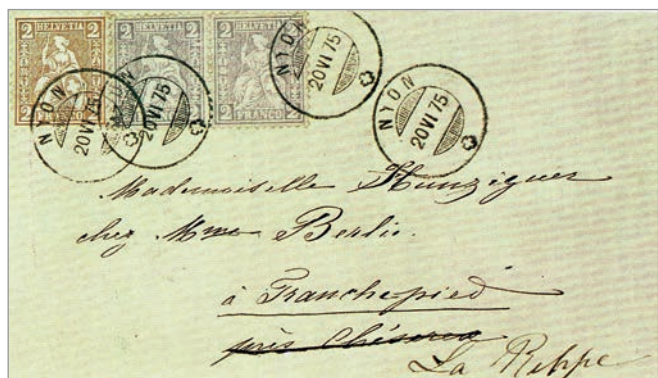 2 HELVETIA 2 2 HELVETIA 2 2 HELVETIA 2
2 2 2 FRANCO 2
NYON
20 VI 75
NYON
20 VI 75
NYON
20 VI 75
NYON
20 VI 75
Mademoiselle Hunziguer
chez Mme Berlie.
à Tranchepied
près Chéserex
La Rippe